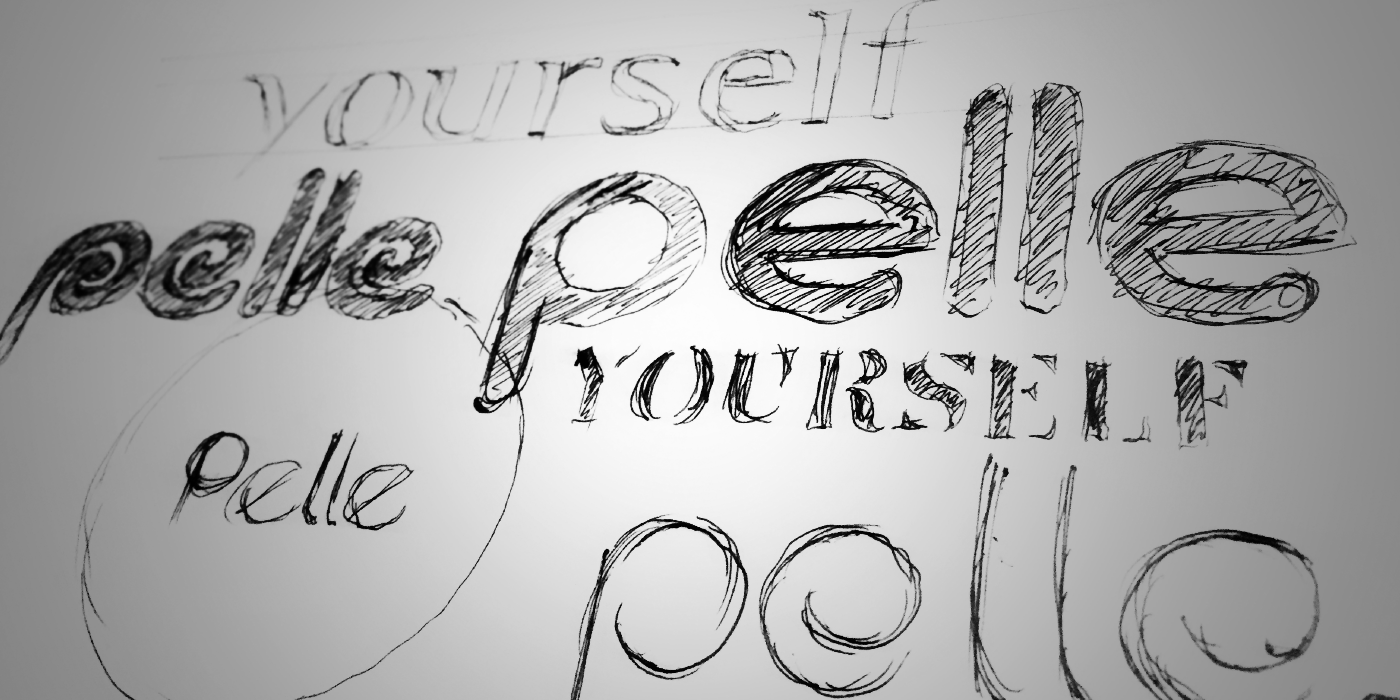 yourself
pelle pelle
YOURSELF
Pelle
pelle